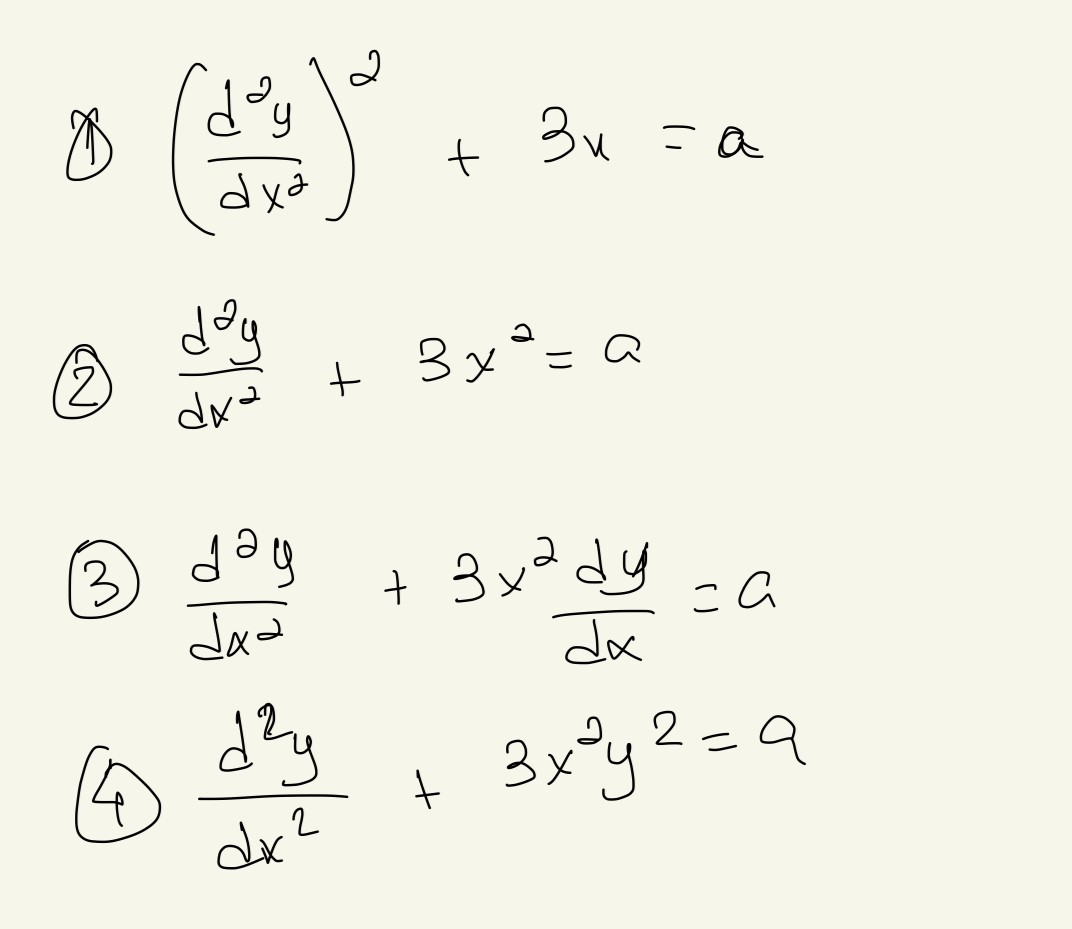 ① (d²y/dx²)² + 3x = a
② d²y/dx² + 3x² = a
③ d²y/dx² + 3x² dy/dx = a
④ d²y/dx² + 3x²y² = a